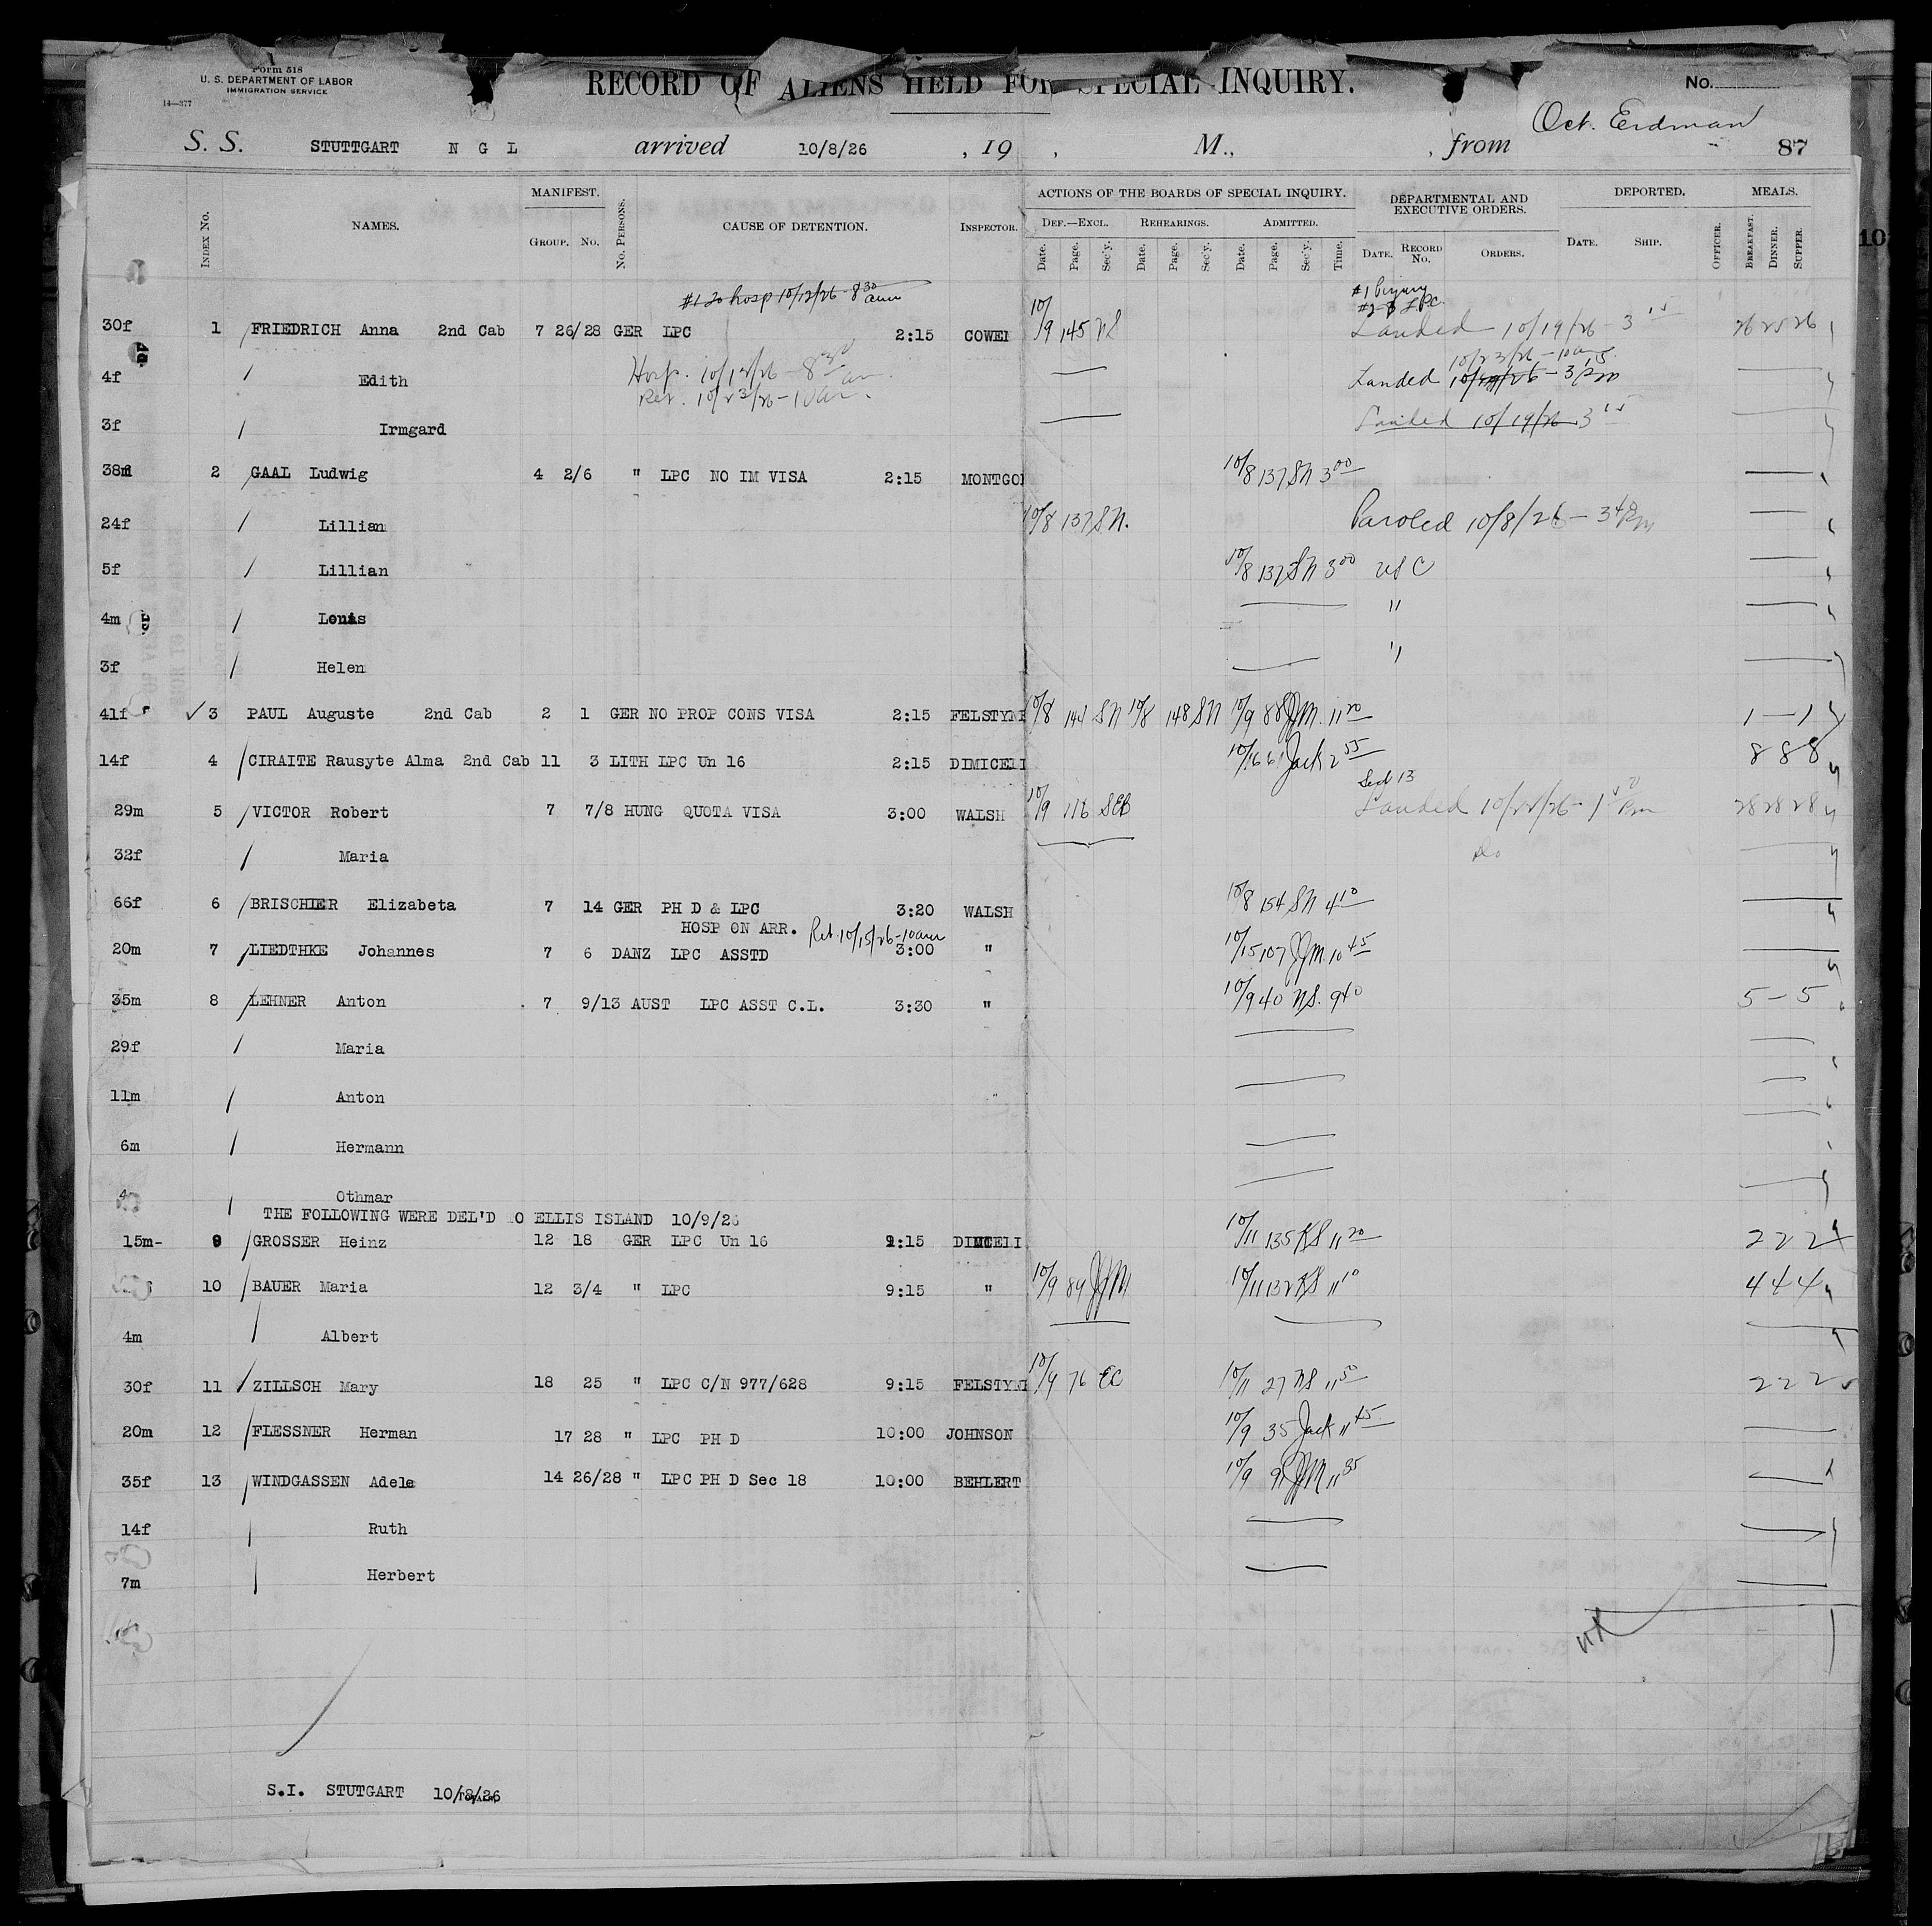 Form 518
U. S. DEPARTMENT OF LABOR
IMMIGRATION SERVICE
14—377
RECORD OF ALIENS HELD FOR SPECIAL INQUIRY.
No.
Oct. Erdman
S. S. STUTTGART N G L arrived 10/8/26 , 19 , M., , from 87
INDEX NO. NAMES. MANIFEST. GROUP. NO. NO. PERSONS. CAUSE OF DETENTION. INSPECTOR. ACTIONS OF THE BOARDS OF SPECIAL INQUIRY. DEF.—EXCL. Date. Page. Sec'y. REHEARINGS. Date. Page. Sec'y. ADMITTED. Date. Page. Sec'y. Time. DEPARTMENTAL AND EXECUTIVE ORDERS. DATE. RECORD NO. ORDERS. DEPORTED. DATE. SHIP. OFFICER. MEALS. BREAKFAST. DINNER. SUPPER.
10
#1 to hosp 10/12/26 - 8 30 am #1
#2-3 LPC.
30f 1 FRIEDRICH Anna 2nd Cab 7 26/28 GER LPC 2:15 COWEN 10/9 145 NS Landed 10/19/26 - 3 15 26 25 26
Hosp. 10/12/26 - 8 30 am. 10/23/26 - 10 am.
4f Edith Ret. 10/23/26 - 10 am. Landed 10/19/26 - 3 15 Pm
3f Irmgard Landed 10/19/26 3 15
38m 2 GAAL Ludwig 4 2/6 " LPC NO IM VISA 2:15 MONTGO 10/8 137 SN 3 00
24f Lillian 10/8 137 SN. Paroled 10/8/26 - 3 40 Pm
5f Lillian 10/8 137 SN 3 00 USC
4m Louis "
3f Helen "
41f ✓ 3 PAUL Auguste 2nd Cab 2 1 GER NO PROP CONS VISA 2:15 FELSTYN 10/8 144 SN 10/8 148 SN 10/9 88 JJM. 11 20 1 — 1
14f 4 CIRAITE Rausyte Alma 2nd Cab 11 3 LITH LPC Un 16 2:15 DIMICELI 10/16 61 Jack 2 55 8 8 8
Sect 13
29m 5 VICTOR Robert 7 7/8 HUNG QUOTA VISA 3:00 WALSH 10/9 116 SEB Landed 28 28 28
32f Maria Do
66f 6 BRISCHIER Elizabeta 7 14 GER PH D & LPC 3:20 WALSH 10/8 154 SN 4 10
HOSP ON ARR. Ret. 10/15/26 - 10 am
20m 7 LIEDTHKE Johannes 7 6 DANZ LPC ASSTD 3:00 " 10/15 107 JJM 10 45
35m 8 LEHNER Anton 7 9/13 AUST LPC ASST C.L. 3:30 " 10/9 40 NS. 9 40 5 - 5
29f Maria
11m Anton
6m Hermann
4 Othmar
THE FOLLOWING WERE DEL'D TO ELLIS ISLAND 10/9/26
15m- 9 GROSSER Heinz 12 18 GER LPC Un 16 9:15 DIMICELI 10/11 135 KS 11 20 2 2 2
10 BAUER Maria 12 3/4 " LPC 9:15 " 10/9 89 JJM 10/11 132 KS 11 10 4 4 4
4m Albert
30f 11 ZILLSCH Mary 18 25 " LPC C/N 977/628 9:15 FELSTYN 10/9 76 EC 10/11 27 NS 11 50 2 2 2
20m 12 FLESSNER Herman 17 28 " LPC PH D 10:00 JOHNSON 10/9 35 Jack 11 45
35f 13 WINDGASSEN Adele 14 26/28 " LPC PH D Sec 18 10:00 BEHLERT 10/9 91 JJM 11 35
14f Ruth
7m Herbert
S.I. STUTGART 10/8/26